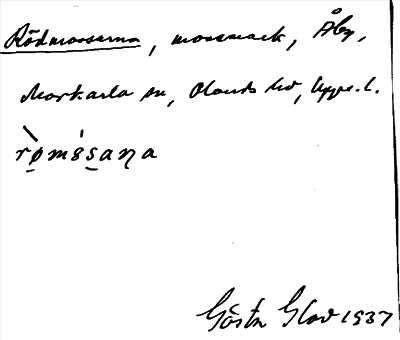 Rödmossarna, mossmark, Åby,
Morkarla sn, Olands hd, Upps. l.
rø̀m8śaṇa
Gösta Glov 1937